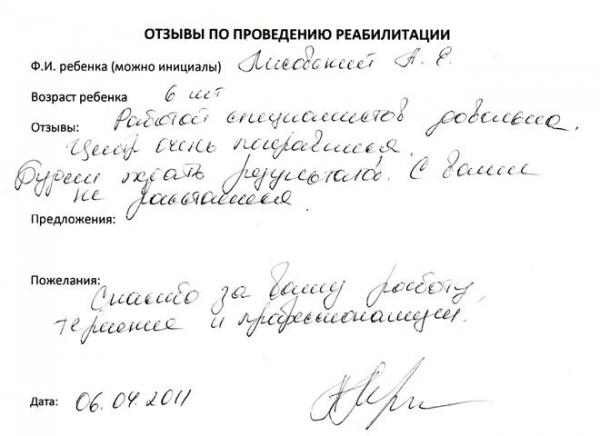 ОТЗЫВЫ ПО ПРОВЕДЕНИЮ РЕАБИЛИТАЦИИ
Ф.И. ребенка (можно инициалы) Лисовский А. Е.
Возраст ребенка 6 лет
Отзывы: Работой специалистов довольна.
Центр очень понравился.
Будем ждать результатов. С Вами
не расстаемся.
Предложения:
Пожелания:
Спасибо за Вашу работу,
терпение и профессионализм.
Дата: 06.04.2011